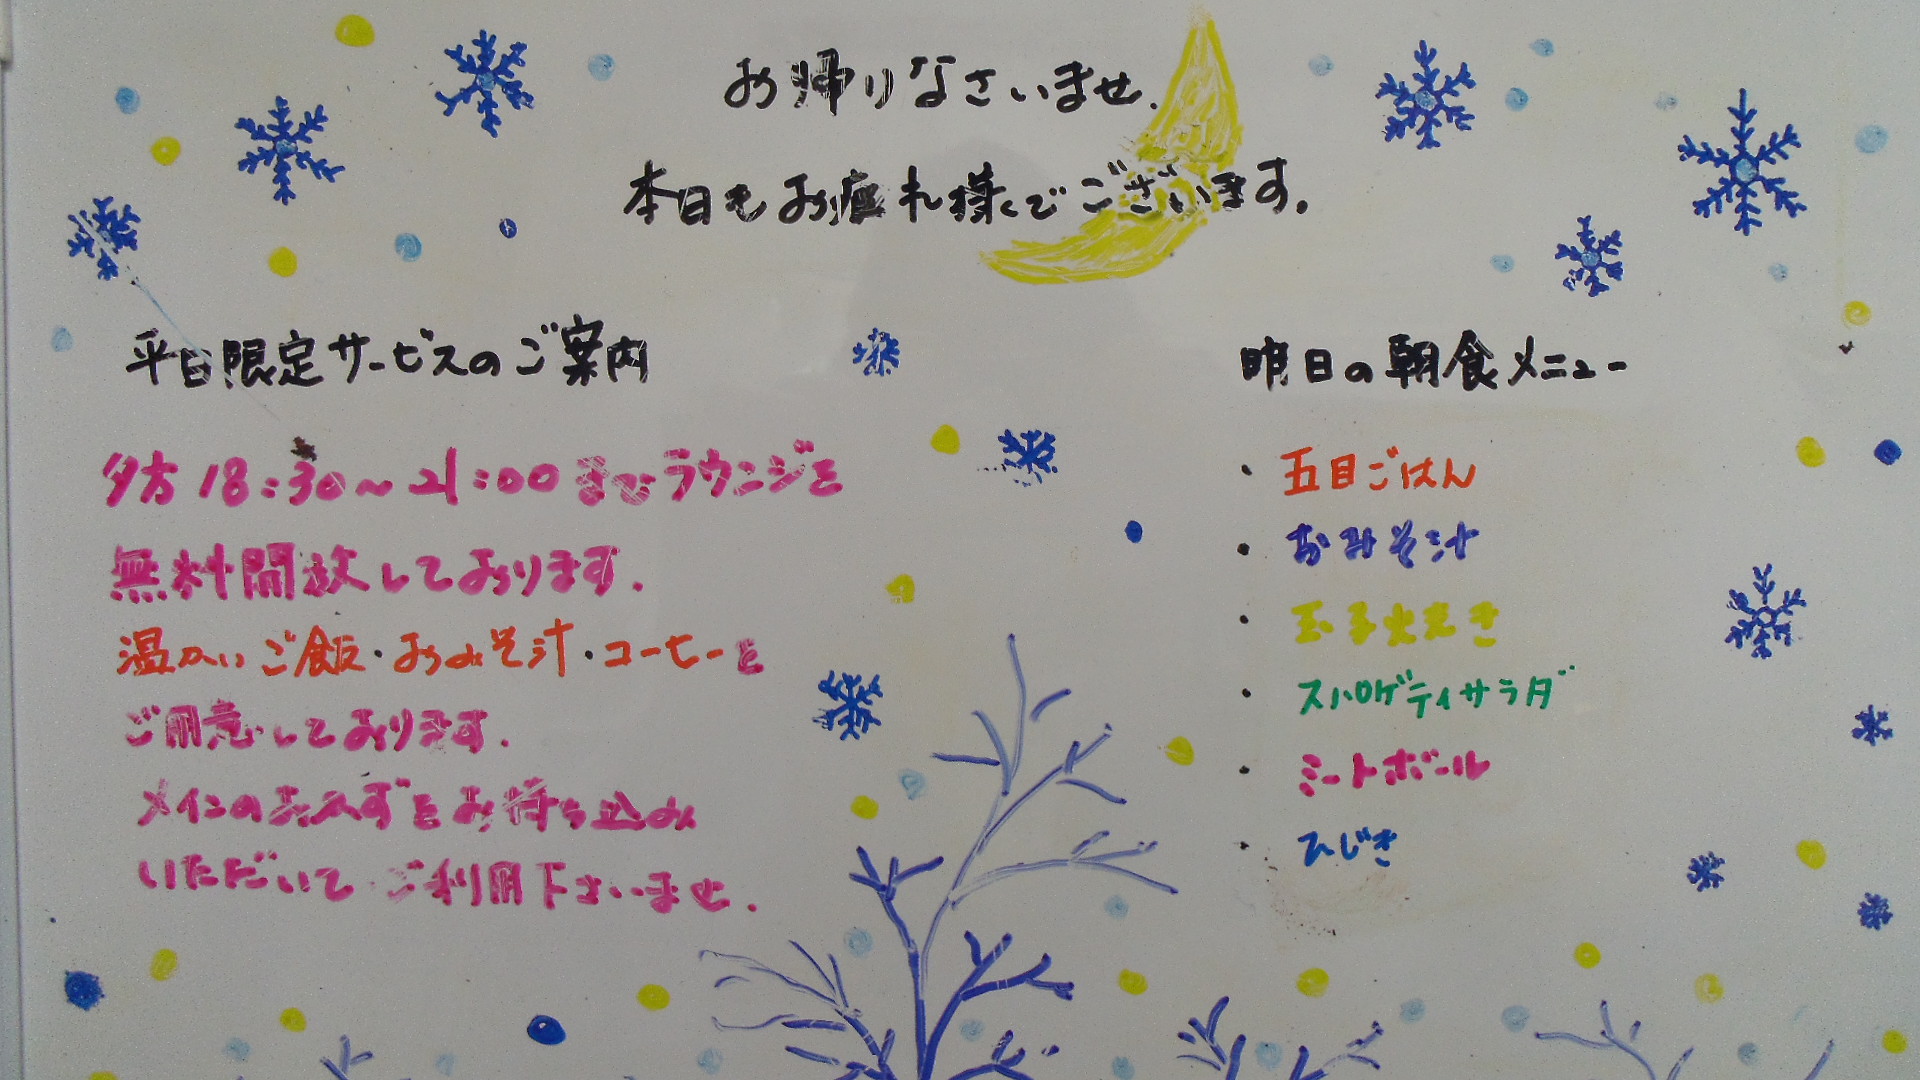 お帰りなさいませ.
本日もお疲れ様でございます.
平日限定サービスのご案内
夕方18:30～21:00までラウンジを
無料開放しております.
温かいご飯・おみそ汁・コーヒーを
ご用意しております.
メインのおかずをお持ち込み
いただいてご利用下さいませ.
明日の朝食メニュー
・五目ごはん
・おみそ汁
・玉子焼き
・スパゲティサラダ
・ミートボール
・ひじき